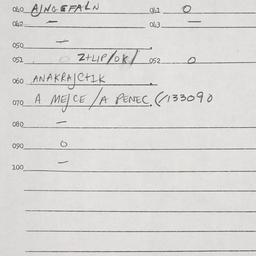 040 AJNGEFALN 041 O
042 — 043 —
050 —
051 O Z+LIP/OK/ 052 O
060 ANAKRAJCTIK
070 A MEJCE/A PENEC, (/133090
080 —
090 O
100 —